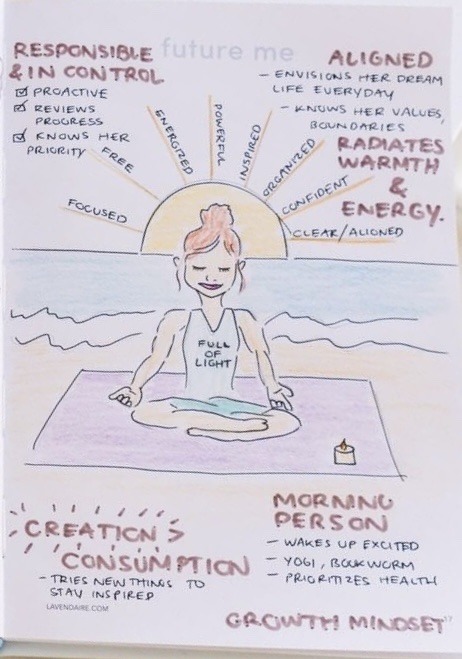 future me
RESPONSIBLE
& IN CONTROL
PROACTIVE
REVIEWS
PROGRESS
KNOWS HER
PRIORITY
ALIGNED
- ENVISIONS HER DREAM
LIFE EVERYDAY
- KNOWS HER VALUES,
BOUNDARIES
RADIATES
WARMTH
&
ENERGY.
FOCUSED
FREE
ENERGIZED
POWERFUL
INSPIRED
ORGANIZED
CONFIDENT
CLEAR/ALIGNED
FULL
OF
LIGHT
CREATION >
CONSUMPTION
- TRIES NEW THINGS TO
STAY INSPIRED
MORNING
PERSON
- WAKES UP EXCITED
- YOGI, BOOKWORM
- PRIORITIZES HEALTH
LAVENDAIRE.COM
GROWTH MINDSET